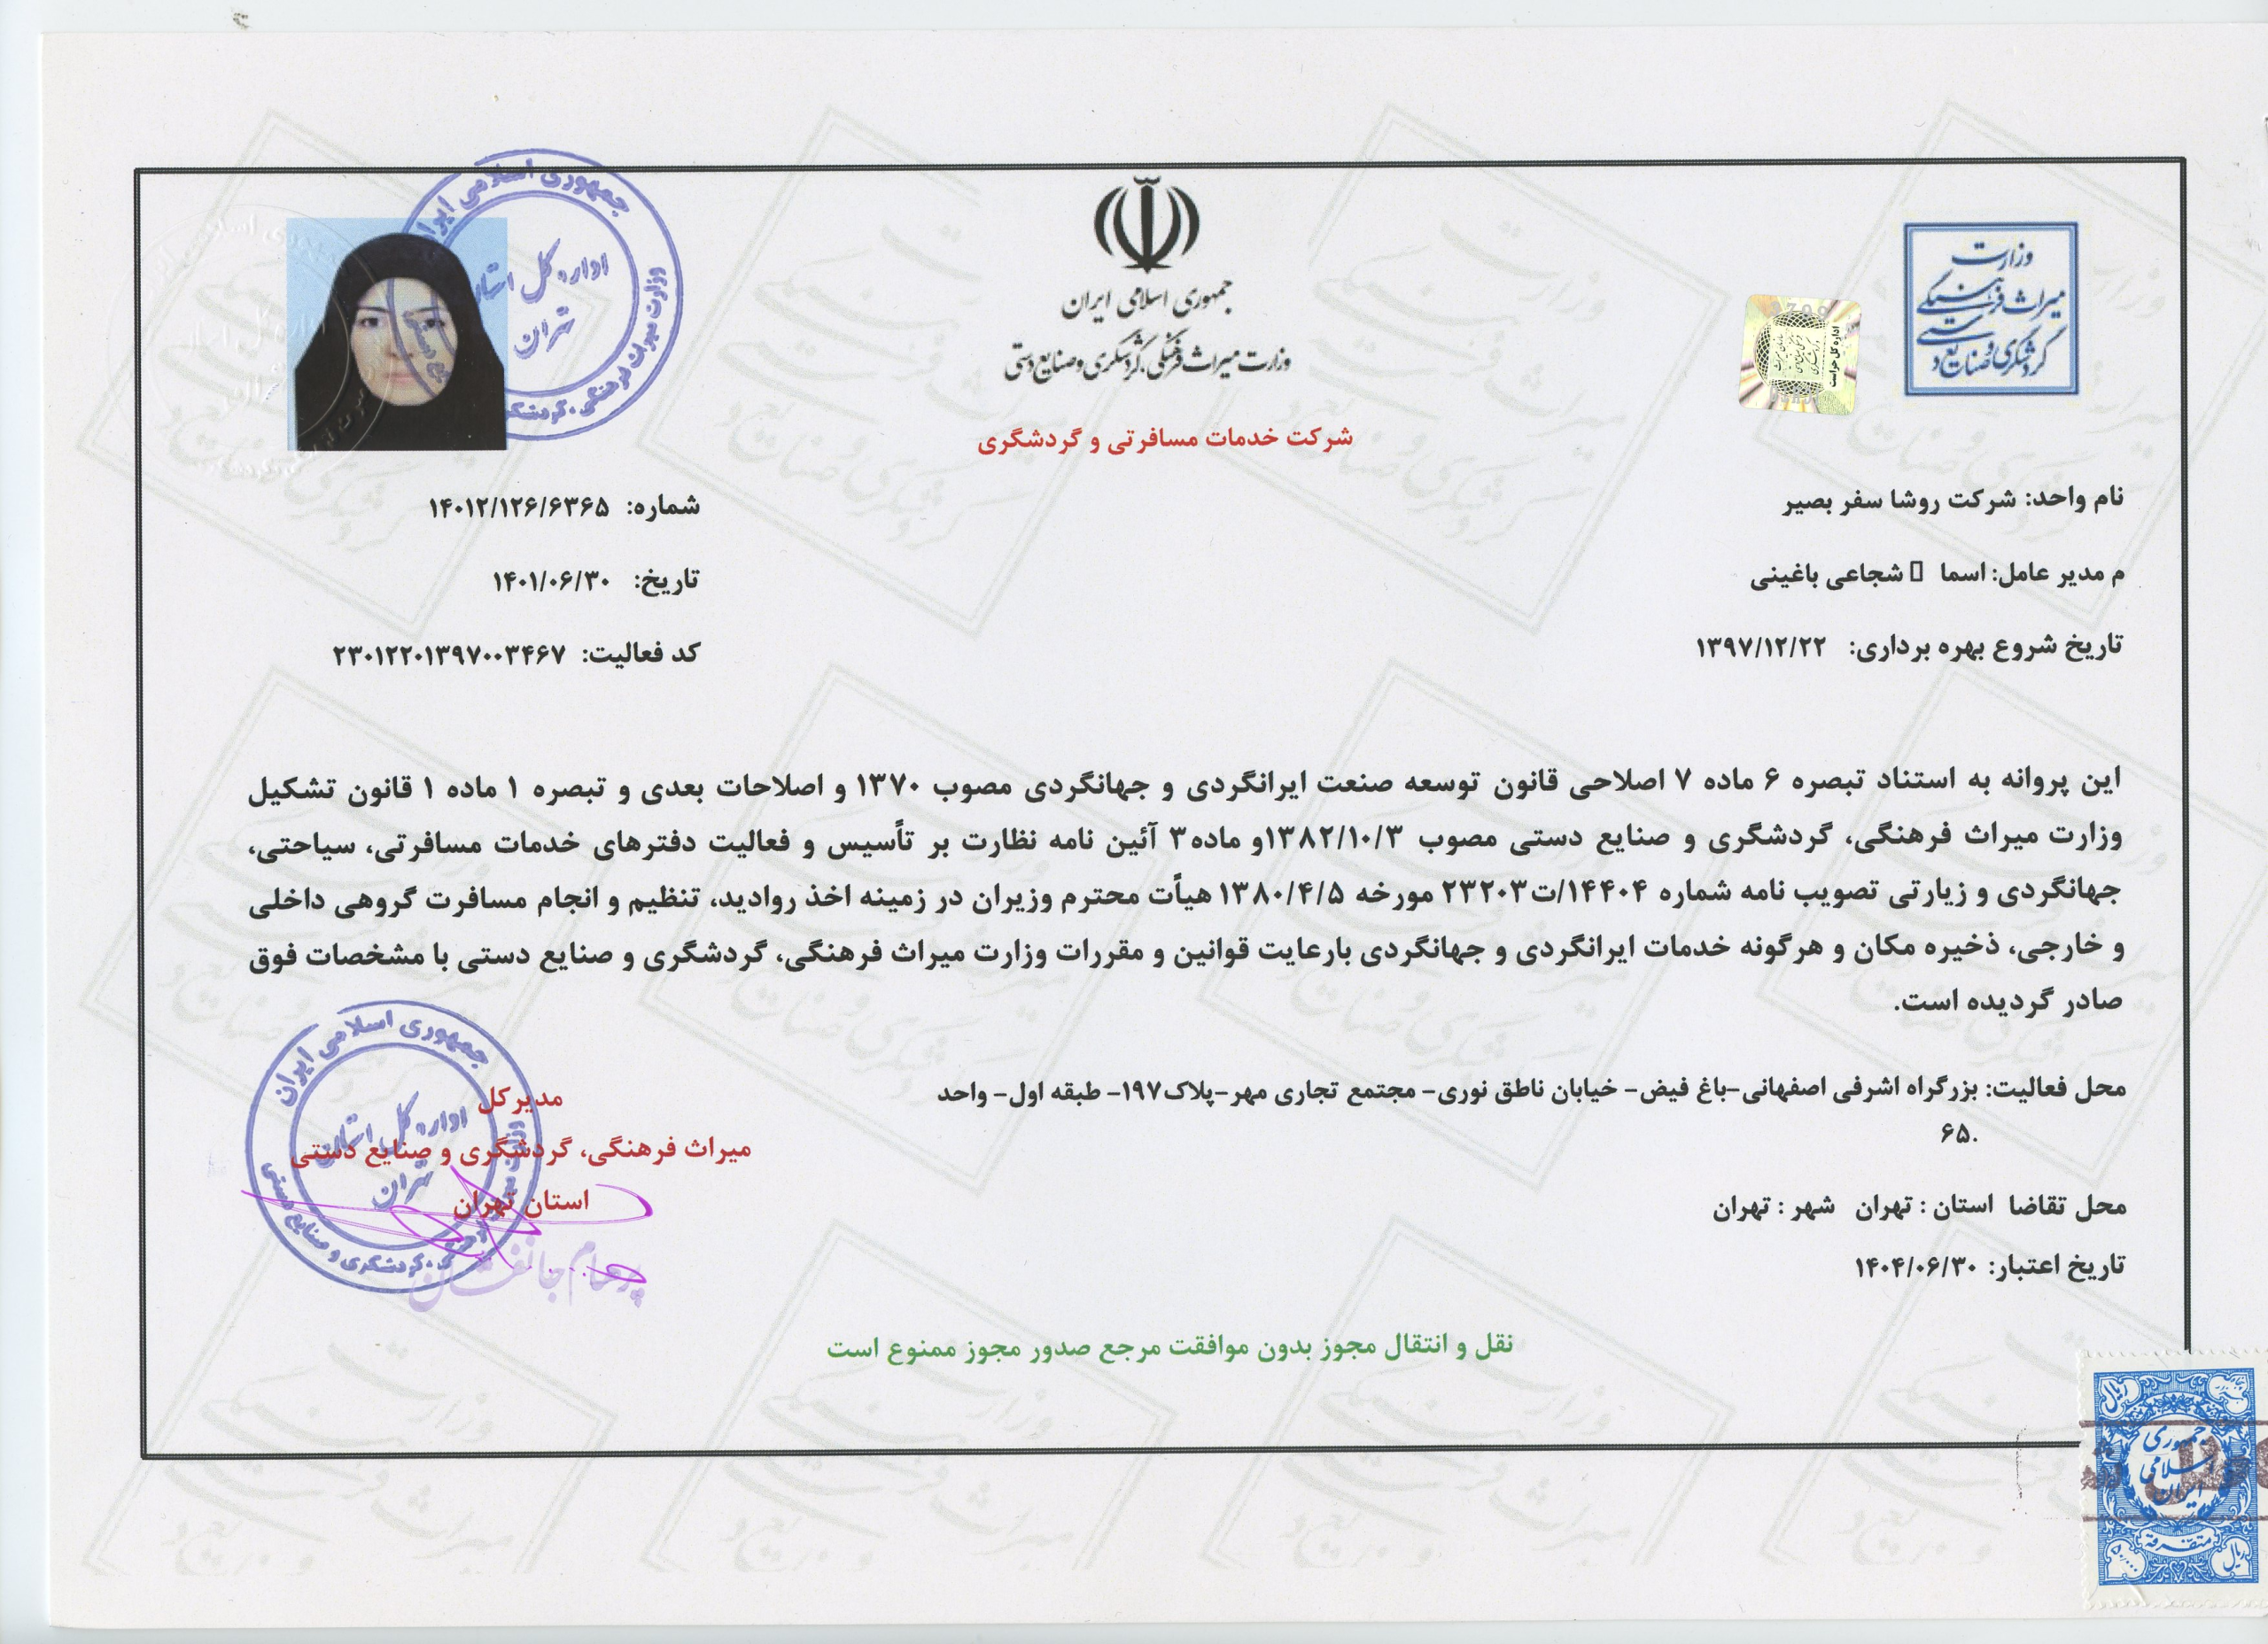 جمهوری اسلامی ایران
وزارت میراث فرهنگی، گردشگری و صنایع دستی
وزارت
میراث فرهنگی
گردشگری و صنایع دستی
اداره کل حراست
جمهوری اسلامی ایران
اداره کل استان
تهران
وزارت میراث فرهنگی، گردشگری
شرکت خدمات مسافرتی و گردشگری
نام واحد: شرکت روشا سفر بصیر
شماره: ۱۴۰۱۲/۱۲۶/۶۳۶۵
م مدیر عامل: اسما شجاعی باغینی
تاریخ: ۱۴۰۱/۰۶/۳۰
تاریخ شروع بهره برداری: ۱۳۹۷/۱۲/۲۲
کد فعالیت: ۲۳۰۱۲۲۰۱۳۹۷۰۰۳۴۶۷
این پروانه به استناد تبصره ۶ ماده ۷ اصلاحی قانون توسعه صنعت ایرانگردی و جهانگردی مصوب ۱۳۷۰ و اصلاحات بعدی و تبصره ۱ ماده ۱ قانون تشکیل
وزارت میراث فرهنگی، گردشگری و صنایع دستی مصوب ۱۳۸۲/۱۰/۳و ماده۳ آئین نامه نظارت بر تأسیس و فعالیت دفترهای خدمات مسافرتی، سیاحتی،
جهانگردی و زیارتی تصویب نامه شماره ۱۴۴۰۴/ت۲۳۲۰۳ مورخه ۱۳۸۰/۴/۵ هیأت محترم وزیران در زمینه اخذ روادید، تنظیم و انجام مسافرت گروهی داخلی
و خارجی، ذخیره مکان و هرگونه خدمات ایرانگردی و جهانگردی بارعایت قوانین و مقررات وزارت میراث فرهنگی، گردشگری و صنایع دستی با مشخصات فوق
صادر گردیده است.
محل فعالیت: بزرگراه اشرفی اصفهانی-باغ فیض- خیابان ناطق نوری- مجتمع تجاری مهر-پلاک۱۹۷- طبقه اول- واحد
۶۵.
محل تقاضا استان : تهران شهر : تهران
تاریخ اعتبار: ۱۴۰۴/۰۶/۳۰
مدیرکل
میراث فرهنگی، گردشگری و صنایع دستی
استان تهران
جمهوری اسلامی ایران
اداره کل استان
تهران
گردشگری و صنایع دستی
پرهام جانفشان
نقل و انتقال مجوز بدون موافقت مرجع صدور مجوز ممنوع است
ریال
جمهوری
اسلامی
ایران
متفرقه
ریال